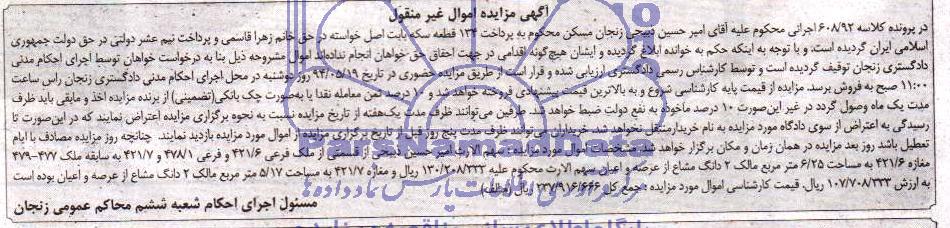 آگهی مزایده اموال غیر منقول
در پرونده کلاسه ۶۰۸/۹۲ اجرائی محکوم علیه آقای امیر حسین ذبیحی زنجان مسکن محکوم به پرداخت ۱۳۴ قطعه سکه بابت اصل خواسته در حق خانم زهرا قاسمی و پرداخت نیم عشر دولتی در حق دولت جمهوری
اسلامی ایران گردیده است. و با توجه به اینکه حکم به خوانده ابلاغ گردیده و ایشان هیچ‌گونه اقدامی در جهت احقاق حق خواهان انجام نداده‌اند اموال مشروحه ذیل بنا به درخواست خواهان توسط اجرای احکام مدنی
دادگستری زنجان توقیف گردیده است و توسط کارشناس رسمی دادگستری ارزیابی شده و قرار است از طریق مزایده حضوری در تاریخ ۹۴/۰۵/۱۹ روز دوشنبه در محل اجرای احکام مدنی دادگستری زنجان راس ساعت
۱۱:۰۰ صبح به فروش برسد. مزایده از قیمت پایه کارشناسی شروع و به بالاترین قیمت پیشنهادی فروخته خواهد شد و ۱۰ درصد ثمن معامله نقدا یا به‌صورت چک بانکی(تضمینی) از برنده مزایده اخذ و مابقی باید ظرف
مدت یک ماه وصول گردد در غیر این‌صورت ۱۰ درصد ماخوذه به نفع دولت ضبط خواهد شد. طرفین می‌توانند ظرف مدت یک‌هفته از تاریخ مزایده نسبت به نحوه برگزاری مزایده اعتراض نمایند که در این‌صورت تا
رسیدگی به اعتراض از سوی دادگاه مورد مزایده به نام خریدار منتقل نخواهد شد. خریداران می‌توانند ظرف مدت پنج روز قبل از تاریخ برگزاری مزایده از اموال مورد مزایده بازدید نمایند. چنانچه روز مزایده مصادف با ایام
تعطیل باشد روز بعد مزایده در همان زمان و مکان برگزار خواهد شد. مشخصات اموال مورد مزایده: سهم الارث امیر حسین ذبیحی از قسمتی از ملک فرعی ۴۲۱/۶ و فرعی ۴۷۸/۱ و ۴۲۱/۷ به سابقه ملک ۴۷۷-۴۷۹
مغازه ۴۲۱/۶ به مساحت ۶/۲۵ متر مربع مالک ۲ دانگ مشاع از عرصه و اعیان سهم الارث محکوم علیه ۱۳۰/۲۰۸/۳۳۳ ریال و مغازه ۴۲۱/۷ به مساحت ۵/۱۷ متر مربع مالک ۲ دانگ مشاع از عرصه و اعیان بوده است
به ارزش ۱۰۷/۷۰۸/۳۳۳ ریال. قیمت کارشناسی اموال مورد مزایده (جمع کل ۲۳۷/۹۱۶/۶۶۶ ریال
مسئول اجرای احکام شعبه ششم محاکم عمومی زنجان
ParsNamadData